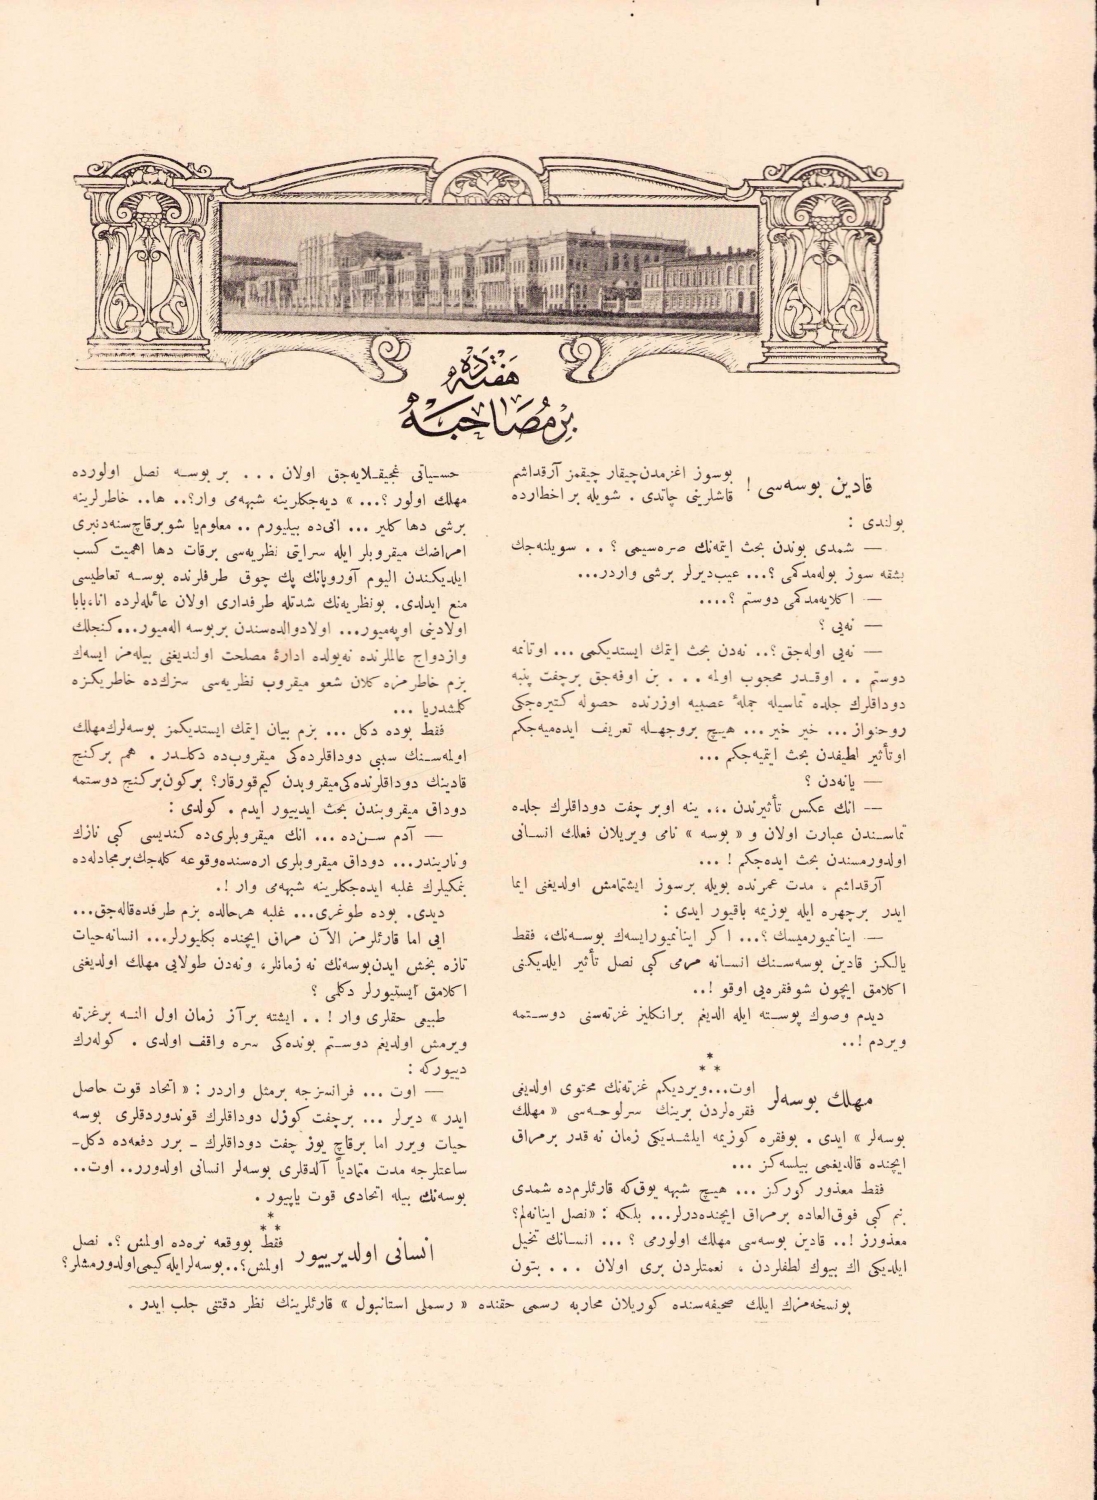 هفته‌ده
بر مصاحبه
قادین بوسه‌سی !
بوسوز اغزمدن چیقار چیقمز آرقداشم
قاشلرینی چاتدی . شویله بر اخطارده
بولندی :
— شمدی بوندن بحث ایتمه‌نك صره‌سیمی ؟ . . سویلنه‌جك
بشقه سوز بوله‌مدكمی ؟... عیب‌دیرلر برشی واردر...
— اكلایه‌مدكمی دوستم ؟....
— نه‌یی ؟
— نه‌یی اوله‌جق ؟.. نه‌دن بحث ایتمك ایستدیكمی ... اوتانمه
دوستم . . اوقـدر محجوب اولمه . . . بن اوفه‌جق برچفت پنبه
دوداقلرك جلده تماسیله جملهٔ عصبیه اوزرنده حصوله كتیره‌جكی
روحنواز ... خیر خیر ... هیـچ بروجهـله تعریف ایده‌میه‌جكم
اوتأثیر لطیفدن بحث ایتمیه‌جكم ...
— یانه‌دن ؟
— انك عكس تأثیرندن ... ینه اوبر چفت دوداقلرك جلده
تماسـندن عبارت اولان و « بوسه » نامی ویریلان فعلك انسـانی
اولدورمسندن بحث ایده‌جكم ! ...
آرقداشم ، مدت عمرنده بویله برسوز ایشتمامش اولدیغنی ایما
ایدر برچهره ایله یوزیمه باقیور ایدی :
— اینانمیورمیسك ؟... اكر اینانمیورایسه‌ك بوسـه‌نك، فقط
یالكز قادین بوسه‌سـنك انسـانه مرمی كبی نصل تأثیر ایلدیكنی
اكلامق ایچون شوفقره‌یی اوقو !..
دیدم وصوك پوسـته ایله الدیغم برانكلیز غزته‌سنی دوسـتمه
ویردم !..
* * *
مهلك بوسه‌لر
اوت...ویردیكم غزته‌نك محتوی اولدیغی
فقره‌لردن برینك سرلوحـه‌سی « مهلك
بوسه‌لر » ایدی . بوفقره كوزیمه ایلشـدیكی زمان نه قدر برمراق
ایچنده قالدیغمی بیلسه‌كز ...
فقط معذور كوركز ... هیـچ شبهه یوق‌كه قارئلرم‌ده شمدی
بنم كبی فوق‌العاده برمراق ایچنده‌درلر... بلكه : «نصل اینانه‌لم؟
معذورز !.. قادین بوسه‌سی مهلك اولورمی ؟ ... انسـانك تخیل
ایلدیكی اك بیوك لطفلردن ، نعمتلردن بری اولان . . . بتون
حسـیاتی غجیقـلایه‌جق اولان . . . بر بوسـه نصل اولورده
مهلك اولور ؟... » دیه‌جكلرینه شبهه‌می وار؟.. ها.. خاطرلرینه
برشی دها كلیر ... انی‌ده بیلیورم .. معلوم‌یا شوبرقاچ سنه‌دنبری
امراضك میقروبلر ایله سرایتی نظریه‌سی برقات دها اهمیت كسب
ایلدیكـندن الیوم آوروپانك پك چوق طرفلرنده بوسـه تعاطیسی
منع ایدلدی. بونظریه‌نك شدتله طرفداری اولان عائله‌لرده انا،بابا
اولادینی اوپه‌میور... اولادوالده‌سندن بربوسه اله‌میور...كنجلك
وازدواج عاللرنده نه‌یولده ادارهٔ مصلحت اولندیغنی بیله‌مز ایسه‌ك
بزم خاطرمزه كلان شو میقروب نظریه‌سی سزك‌ده خاطریكزه
كلمشدریا ...
فقط بوده دكل ... بزم بیان ایتمك ایستدیكمز بوسه‌لرك‌مهلك
اولمه‌سـنك سببی دوداقلرده‌كی میقروب‌ده دكلـدر . هم بركنج
قادینك دوداقلرنده‌كی‌میقروبدن كیم‌قورقار؟ بركون‌بركنج دوستمه
دوداق میقروبندن بحث ایدییور ایدم . كولدی :
— آدم سـن‌ده ... انك میقروبلری‌ده كندیسی كبی نازك
ونازیندر... دوداق میقروبلری اره‌سنده‌وقوعه كله‌جك‌برمجادله‌ده
بنمكیلرك غلبه ایده‌جكلرینه شبهه‌می وار !.
دیدی. بوده طوغری... غلبه هرحالده بزم طرفده‌قاله‌جق...
ایی اما قارئلرمز الآن مراق ایچنده بكلیورلر... انسانه‌حیات
تازه بخش ایدن‌بوسه‌نك نه زمانلر، ونه‌دن طولایی مهلك اولدیغنی
اكلامق ایستیورلر دكلمی ؟
طبیعی حقلری وار ! . . ایشته برآز زمان اول النـه برغزته
ویرمش اولدیغم دوسـتم بونده‌كی سره واقف اولدی . كوله‌رك
دییوركه :
— اوت ... فرانسزجه برمثل واردر : « اتحاد قوت حاصل
ایدر » دیرلر ... برچفت كوزل دوداقلرك قوندوردقلری بوسه
حیات ویرر اما برقاچ یوز چفت دوداقلرك ـ برر دفعه‌ده دكل‌ـ
ساعتلرجه مدت متمادیاً آلدقلری بوسه‌لر انسانی اولدورر.. اوت..
بوسه‌نك بیله اتحادی قوت یاپییور .
* * *
انسانی اولدیرییور
فقط بووقعه نره‌ده اولمش ؟. نصل
اولمش؟..بوسه‌لرایله‌كیمی‌اولدورمشلر؟
بونسخه‌مزك ایلك صحیفه‌سنده كوریلان محاربه رسمی حقنده « رسملی استانبول » قارئلرینك نظر دقتنی جلب ایدر .